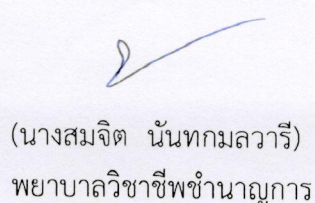 (นางสมจิต นันทกมลวารี)
พยาบาลวิชาชีพชำนาญการ